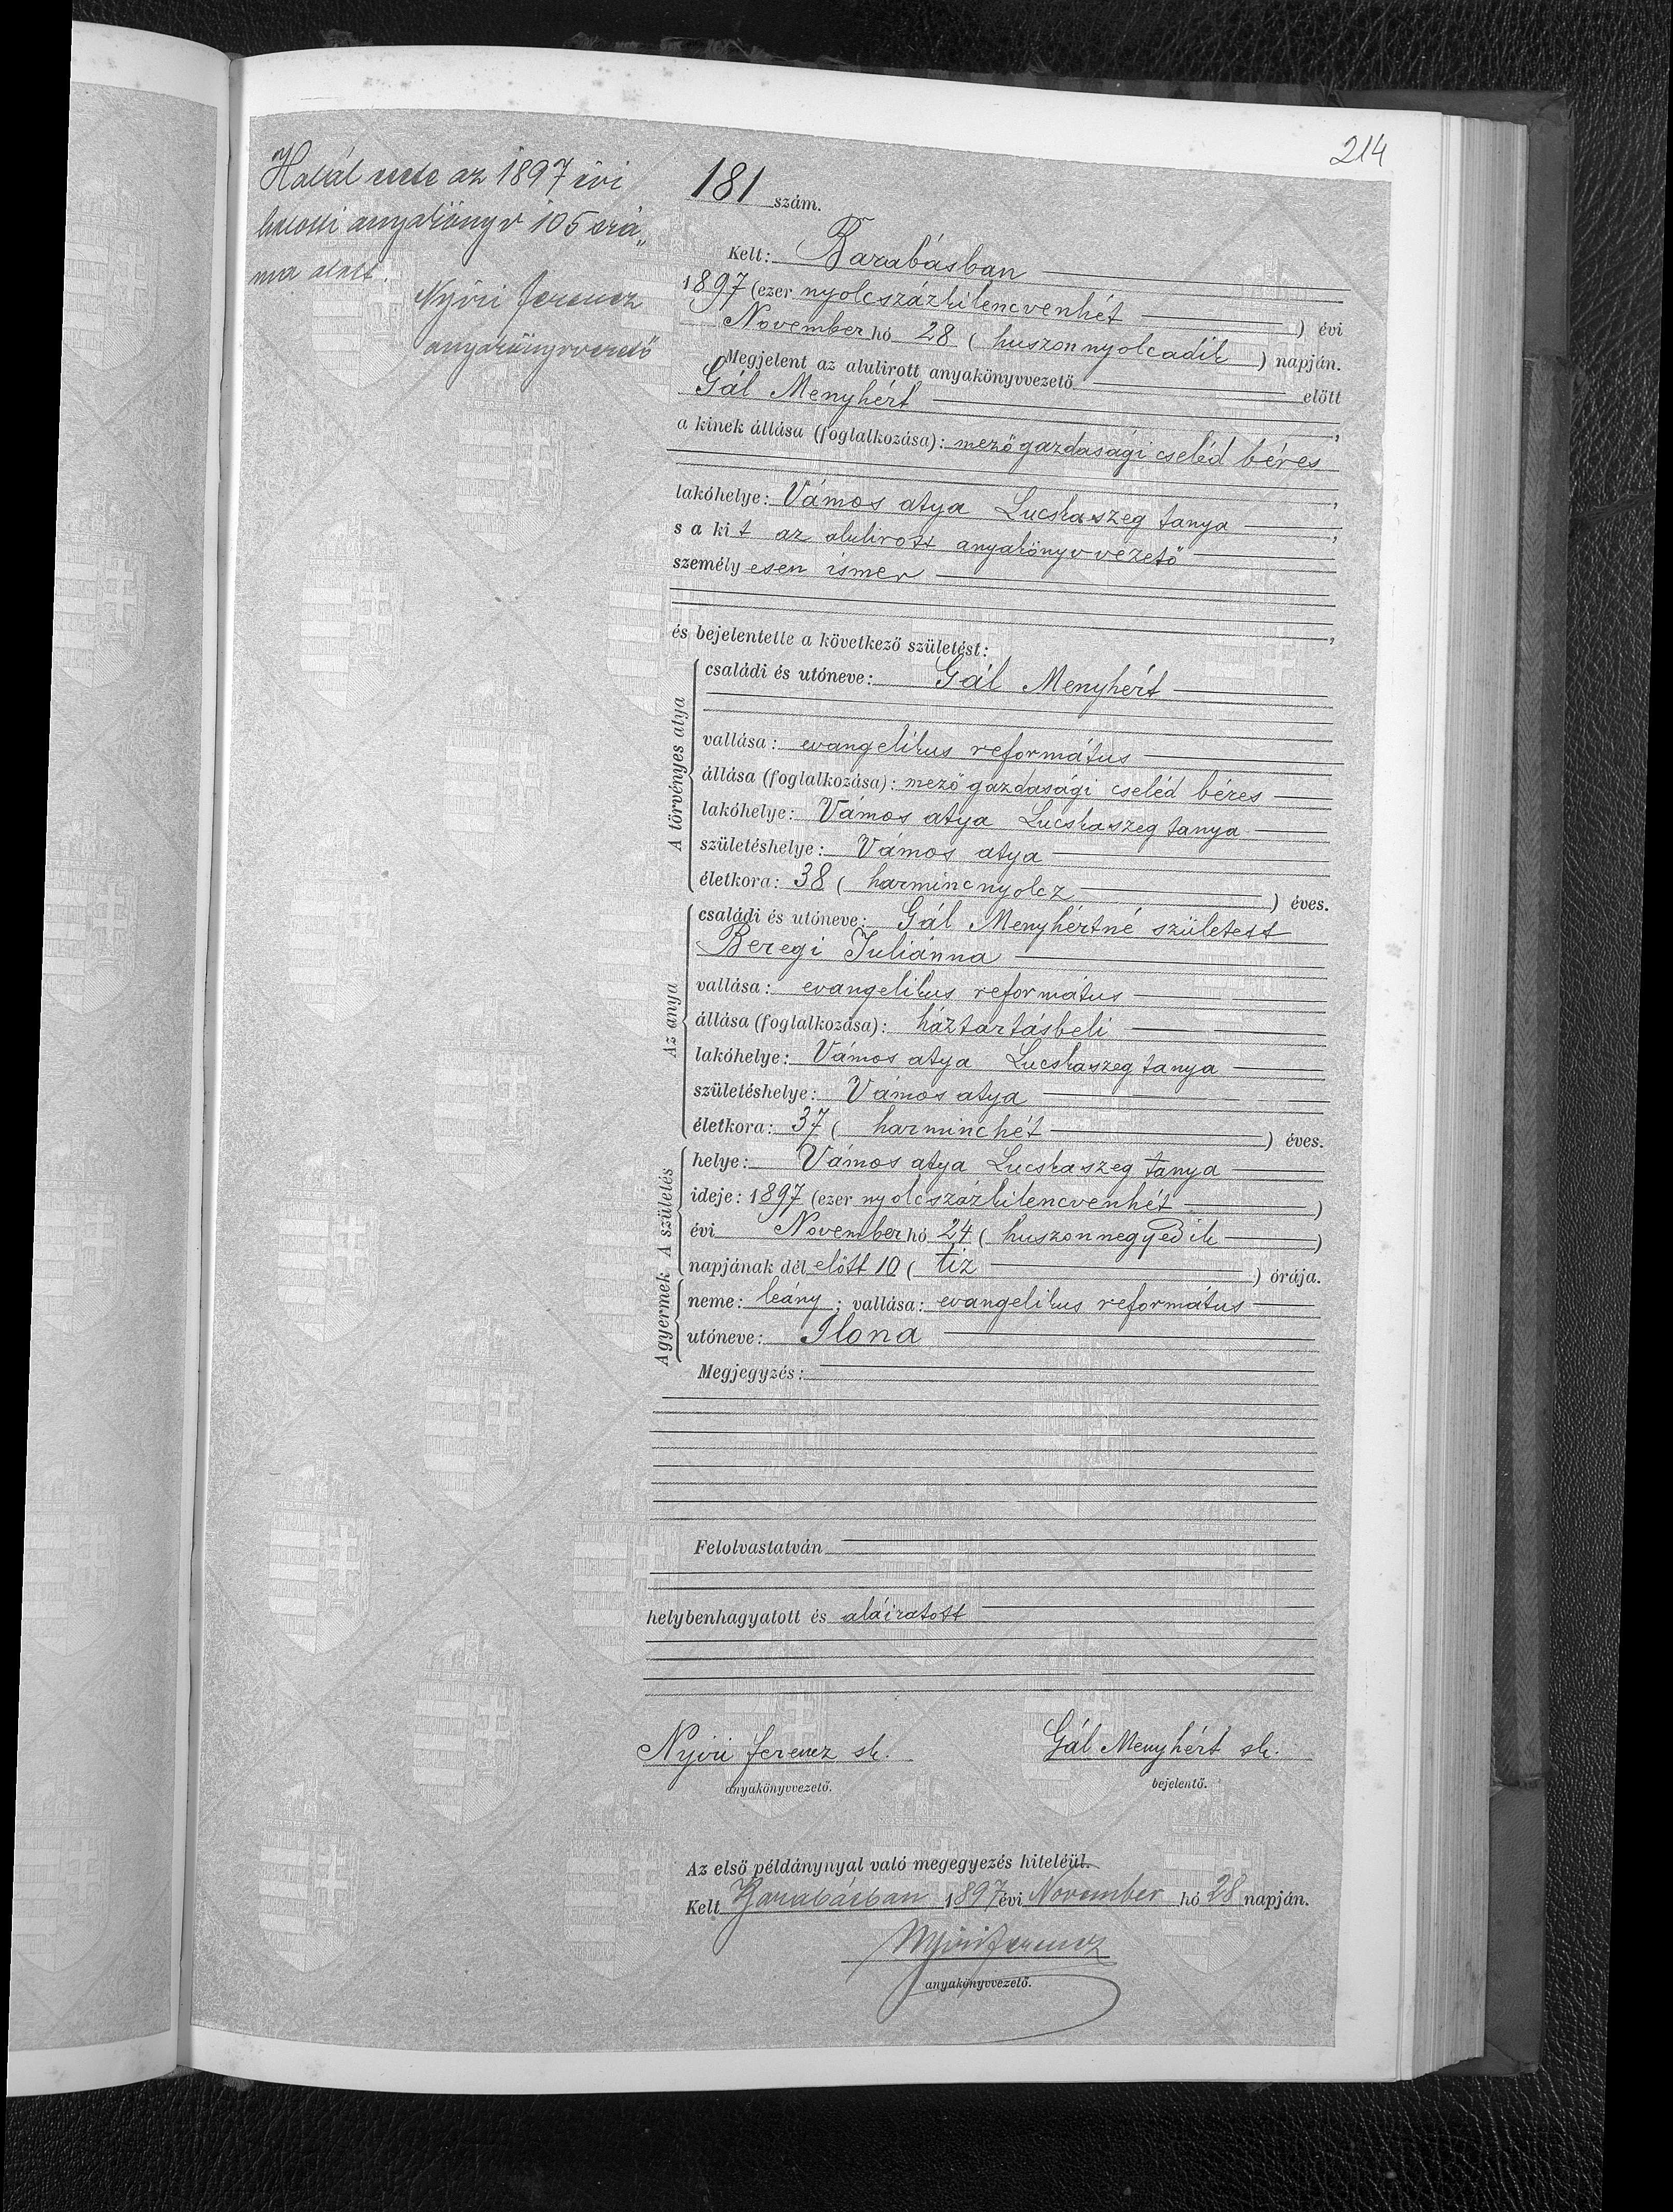 214
Halál esete az 1897 évi
halotti anyakönyv 105 szá„
ma alatt.
Nyíri Ferencz
anyakönyvvezető
181 szám.
Kelt: Barabásban
1897 (ezer nyolczszázkilenczvenhét) évi
November hó 28 (huszonnyolcadik) napján.
Megjelent az alulirott anyakönyvvezető előtt
Gál Menyhért,
a kinek állása (foglalkozása): mezőgazdasági cseléd béres
,
lakóhelye: Vámos atya Lucskaszeg tanya,
s a kit az alulirott anyakönyvvezető
személyesen ismer
,
és bejelentette a következő születést:
A törvényes atya
családi és utóneve: Gál Menyhért
vallása: evangelikus református
állása (foglalkozása): mező gazdasági cseléd béres
lakóhelye: Vámos atya Lucskaszeg tanya
születéshelye: Vámos atya
életkora: 38 (harmincnyolcz) éves.
Az anya
családi és utóneve: Gál Menyhértné született
Beregi Juliánna
vallása: evangelikus református
állása (foglalkozása): háztartásbeli
lakóhelye: Vámos atya Lucskaszeg tanya
születéshelye: Vámos atya
életkora: 37 (harminchét) éves.
A születés
helye: Vámos atya Lucskaszeg tanya
ideje: 1897 (ezer nyolcszázkilencvenhét)
évi November hó 24 (huszonnegyedik)
napjának dél előtt 10 (tiz) órája.
A gyermek
neme: leány; vallása: evangelikus református
utóneve: Ilona
Megjegyzés:
Felolvastatván
helybenhagyatott és aláiratott
Nyíri Ferencz sk. Gál Menyhért sk.
anyakönyvvezető. bejelentő.
Az első példánynyal való megegyezés hiteléül.
Kelt Barabásban 1897 évi November hó 28 napján.
Nyíri Ferencz
anyakönyvvezető.